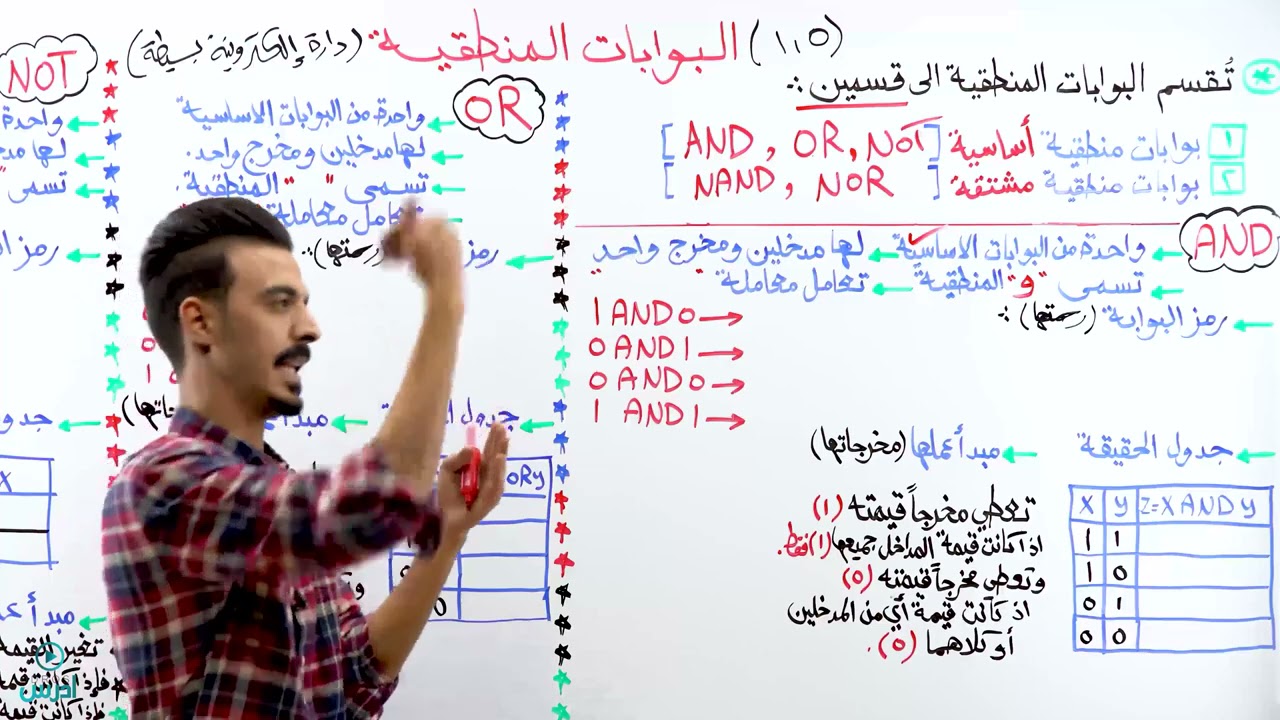 (١,٥) البوابات المنطقية (دارة إلكترونية بسيطة)
* تُقسم البوابات المنطقية الى قسمين :.
١ بوابات منطقية أساسية [AND , OR, NOT]
٢ بوابات منطقية مشتقة [NAND , NOR]
AND
واحدة من البوابات الاساسية ← لها مدخلين ومخرج واحد
تسمى "و" المنطقية ← تعامل معاملة " "
رمز البوابة (رسمتها) :.
1 AND 0 →
0 AND 1 →
0 AND 0 →
1 AND 1 →
جدول الحقيقة
X Y Z=X AND Y
1 1
1 0
0 1
0 0
مبدأ عملها (مخرجاتها)
تعطي مخرجاً قيمته (١)
اذا كانت قيمة المداخل جميعها (١) فقط.
وتعطي مخرجاً قيمته (٥)
اذ كانت قيمة أي من المدخلين
أو كلاهما (٥).
OR
واحدة من البوابات الاساسية
لها مدخلين ومخرج واحد.
تسمى " " المنطقية.
تعامل معاملة
رمز (رسمتها) :.
جدول
OR y
0
NOT
واحدة
تسمى "
X
تغير القيمة
ادرس